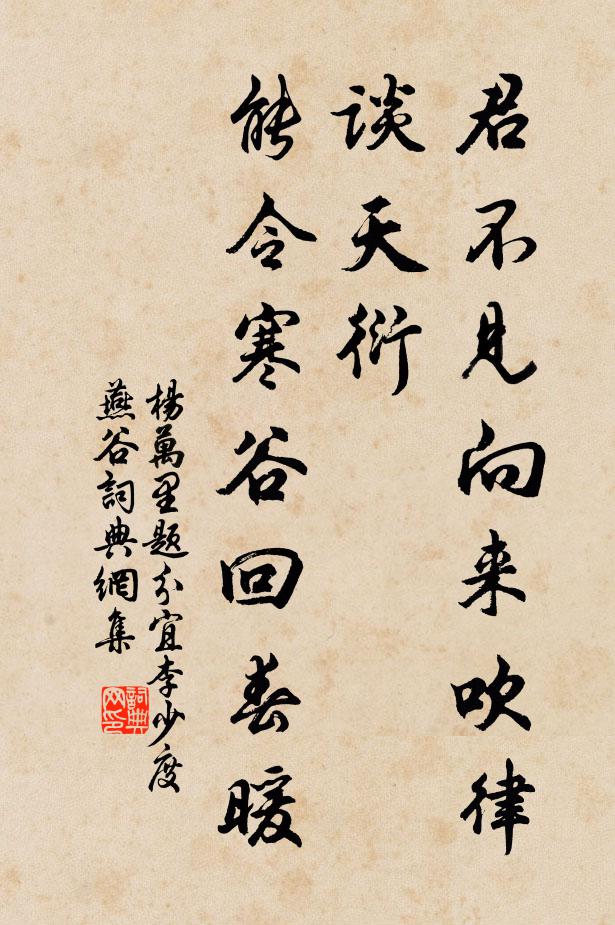 君不见向来吹律
谈天衍
能令寒谷回春暖
楊萬里題分宜李少度
燕谷詞典網集
詞典网印